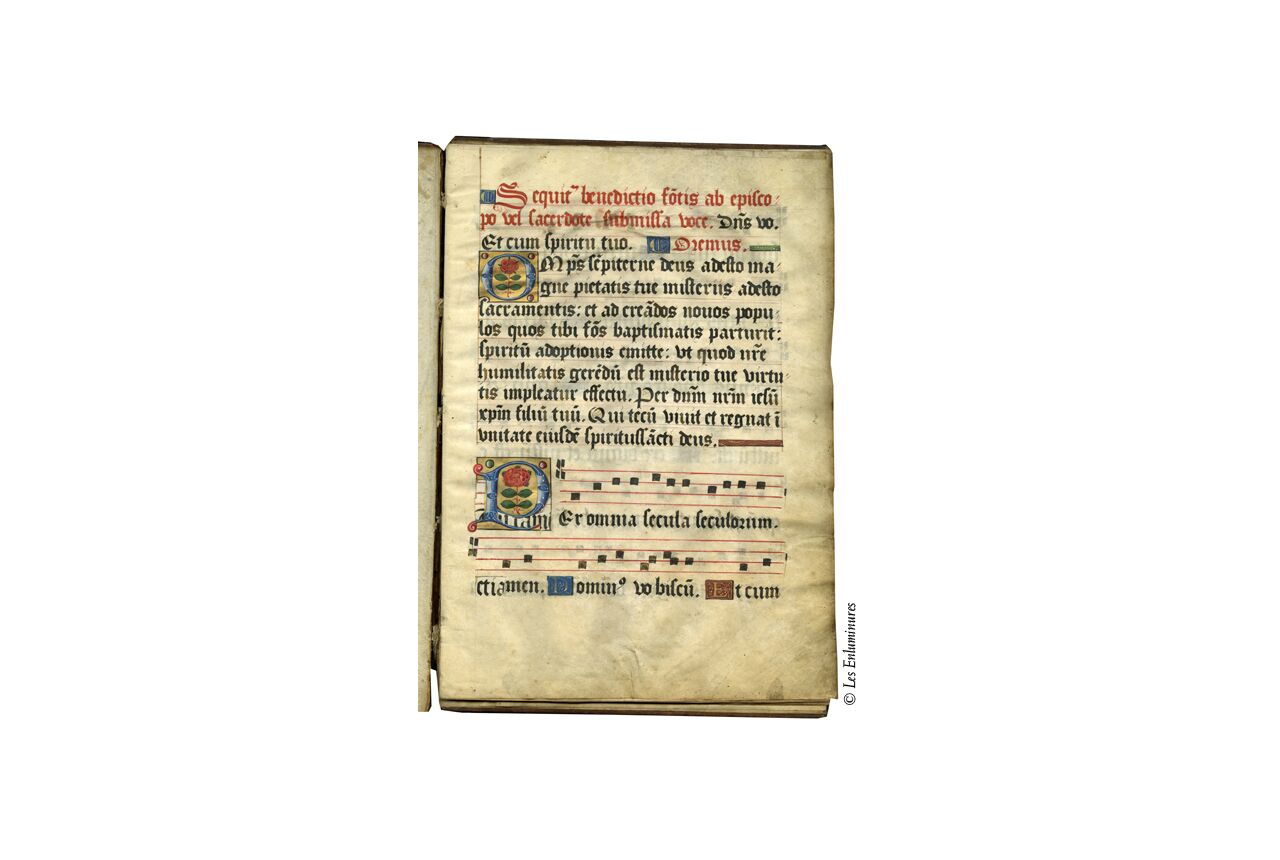 Sequit᷑ benedictio fōtis ab episco-
po vel sacerdote submissa voce. Dn̄s vo.
Et cum spiritu tuo. Oremus.
OMp̄s sēpiterne deus adesto ma-
gne pietatis tue misteriis adesto
sacramentis: et ad creādos nouos popu-
los quos tibi fōs baptismatis parturit:
spiritū adoptionis emitte: vt quod nr̄e
humilitatis gerēdū est misterio tue virtu-
tis impleatur effectu. Per dnm̄ nrm̄ iesū
xp̄m filiū tuū. Qui tecū viuit et regnat ī
vnitate eiusdē spiritussācti deus.
PEr omnia secula seculorum.
etiamen. Dominꝰ vobiscū. Et cum
© Les Enluminures